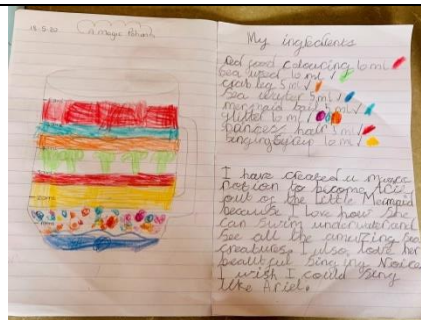 18.5.20
My magic Potion
My ingredients
Red food colouring 10 mL
Sea weed 10 mL
crab leg 5 mL
Sea water 5 mL
mermaid tail 5 mL
glitter 10 mL
princess hair 5 mL
singing syrup 10 mL
I have created a magic
Potion to become Ariel
out of the Little Mermaid
because I love how she
can swim underwater and
see all the amazing sea
creatures. I also love her
beautiful singing Voice.
I wish I could sing
like Ariel.